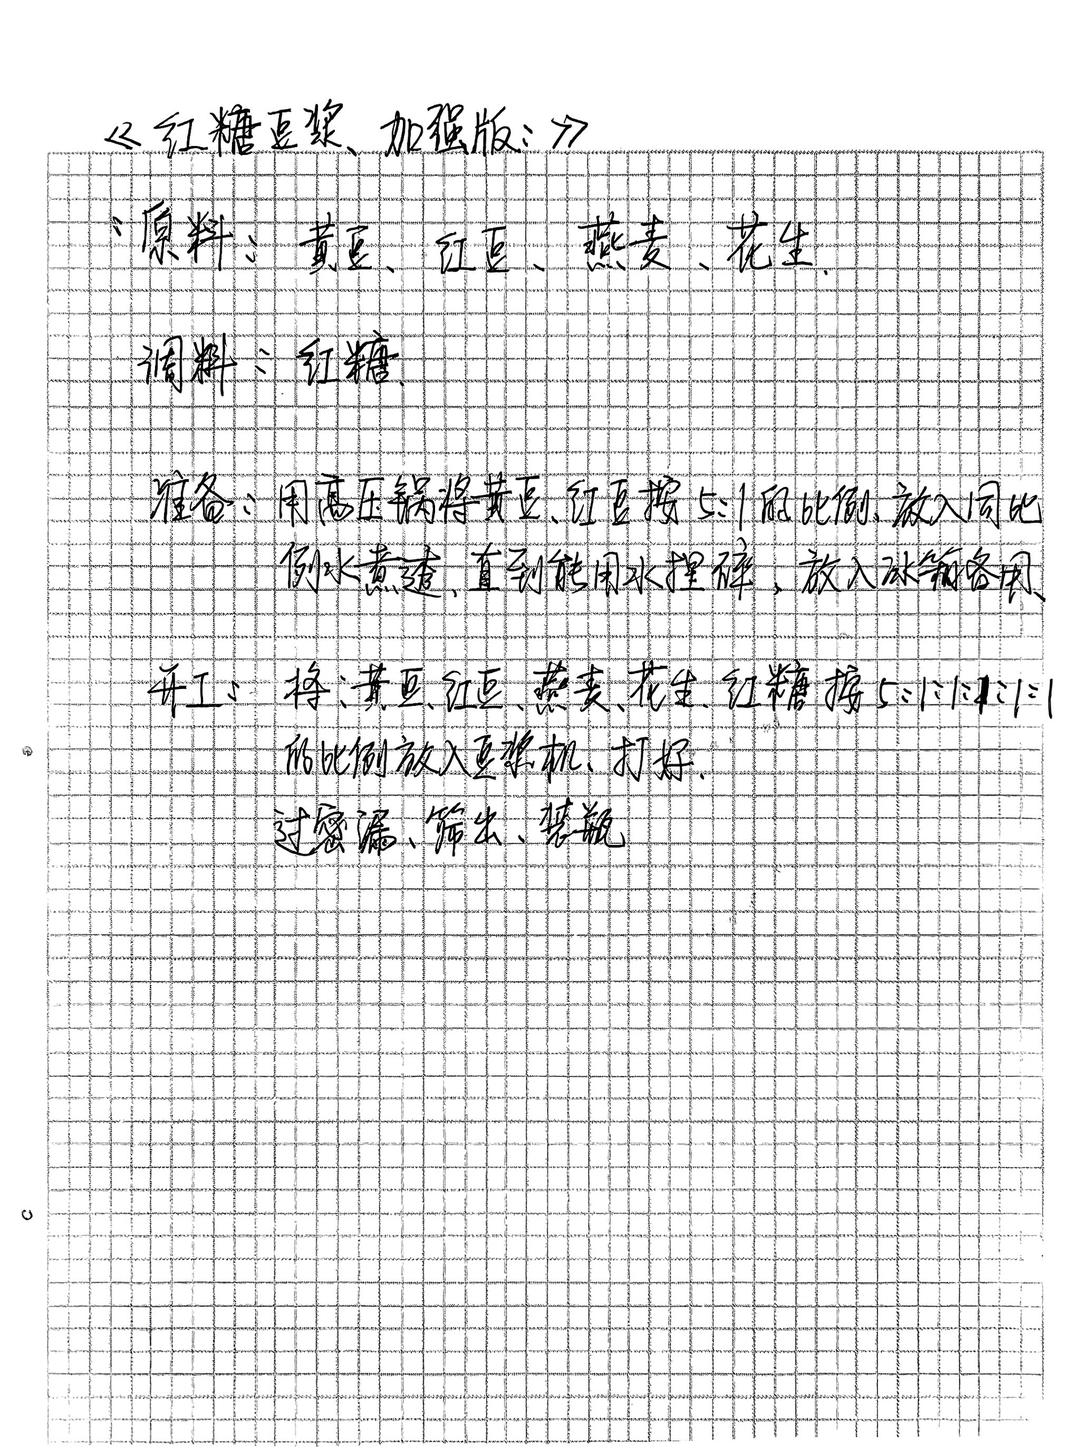 《红糖豆浆、加强版:》
:原料: 黄豆、红豆、燕麦、花生.
调料: 红糖.
准备: 用高压锅将黄豆、红豆按5:1的比例、放入同比
例水煮渣、直到能用水捏碎、放入冰箱备用、
开工: 将:黄豆、红豆、燕麦、花生、红糖按5:1:1:1:1:1
的比例放入豆浆机、打好.
过密漏、筛出、装瓶